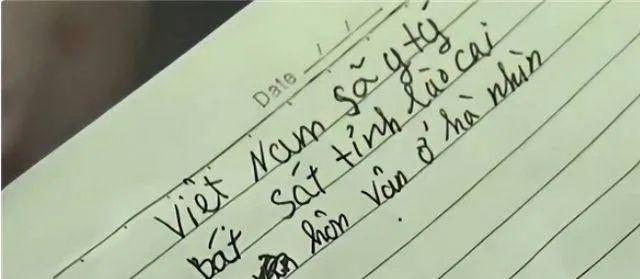 Date / /
Việt Nam sã y tý
bát sát tỉnh lào cai
hôn vân ở hà nhìn